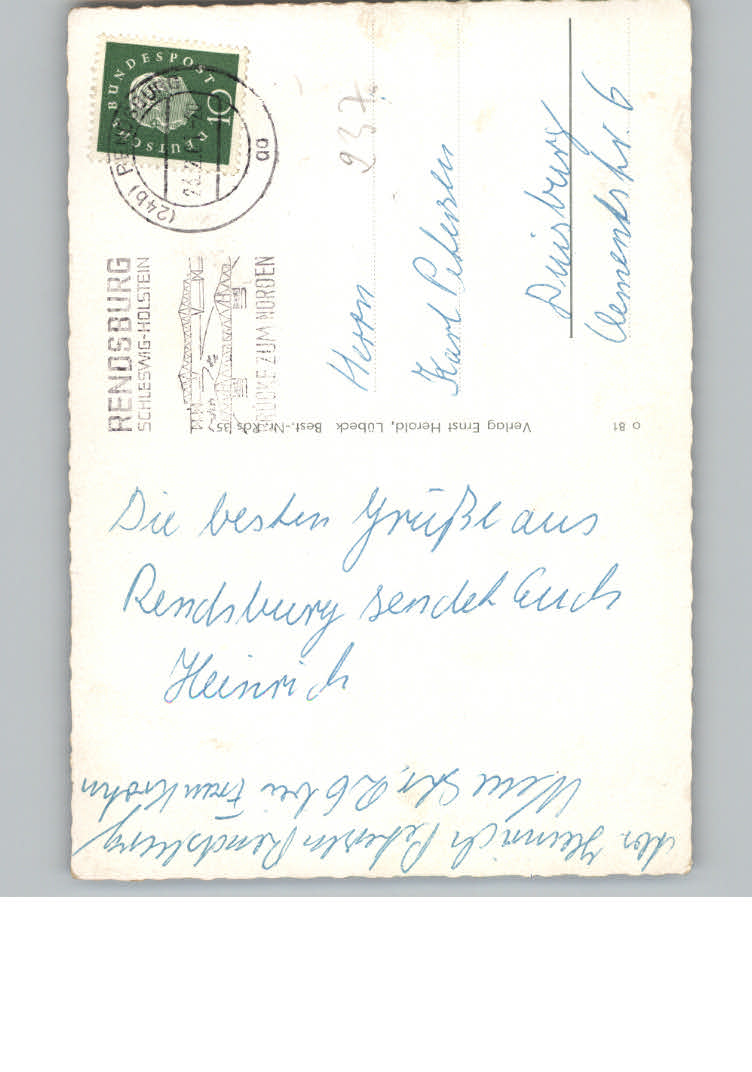 DEUTSCHE BUNDESPOST
10
(24b) RENDSBURG
aa
RENDSBURG
SCHLESWIG-HOLSTEIN
BRÜCKE ZUM NORDEN
237
Herrn
Karl Petersen
Duisburg
Clemensstr. 6
Verlag Ernst Herold, Lübeck Best.-Nr. Rds 35
o 81
Die besten Grüße aus
Rendsburg sendet Euch
Heinrich
Abs. Heinrich Petersen Rendsburg
Neue Str. 26 bei Frau Krohn